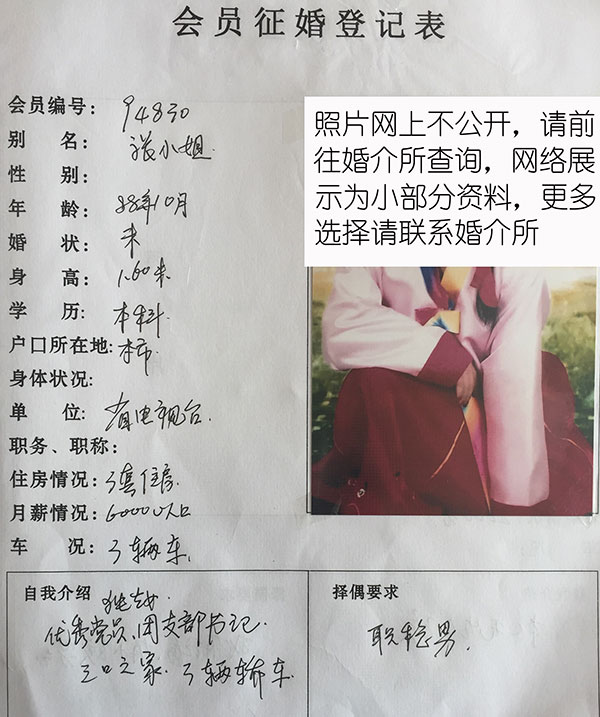 会员征婚登记表
会员编号：94830
别 名：张小姐
性 别：
年 龄：88年10月
婚 状：未
身 高：1.60米
学 历：本科
户口所在地：本市
身体状况：
单 位：省电视台
职务、职称：
住房情况：3套住房
月薪情况：60000以上
车 况：3辆车
照片网上不公开，请前
往婚介所查询，网络展
示为小部分资料，更多
选择请联系婚介所
自我介绍 独女
优秀党员、团支部书记
三口之家 3辆轿车
择偶要求
职稳男